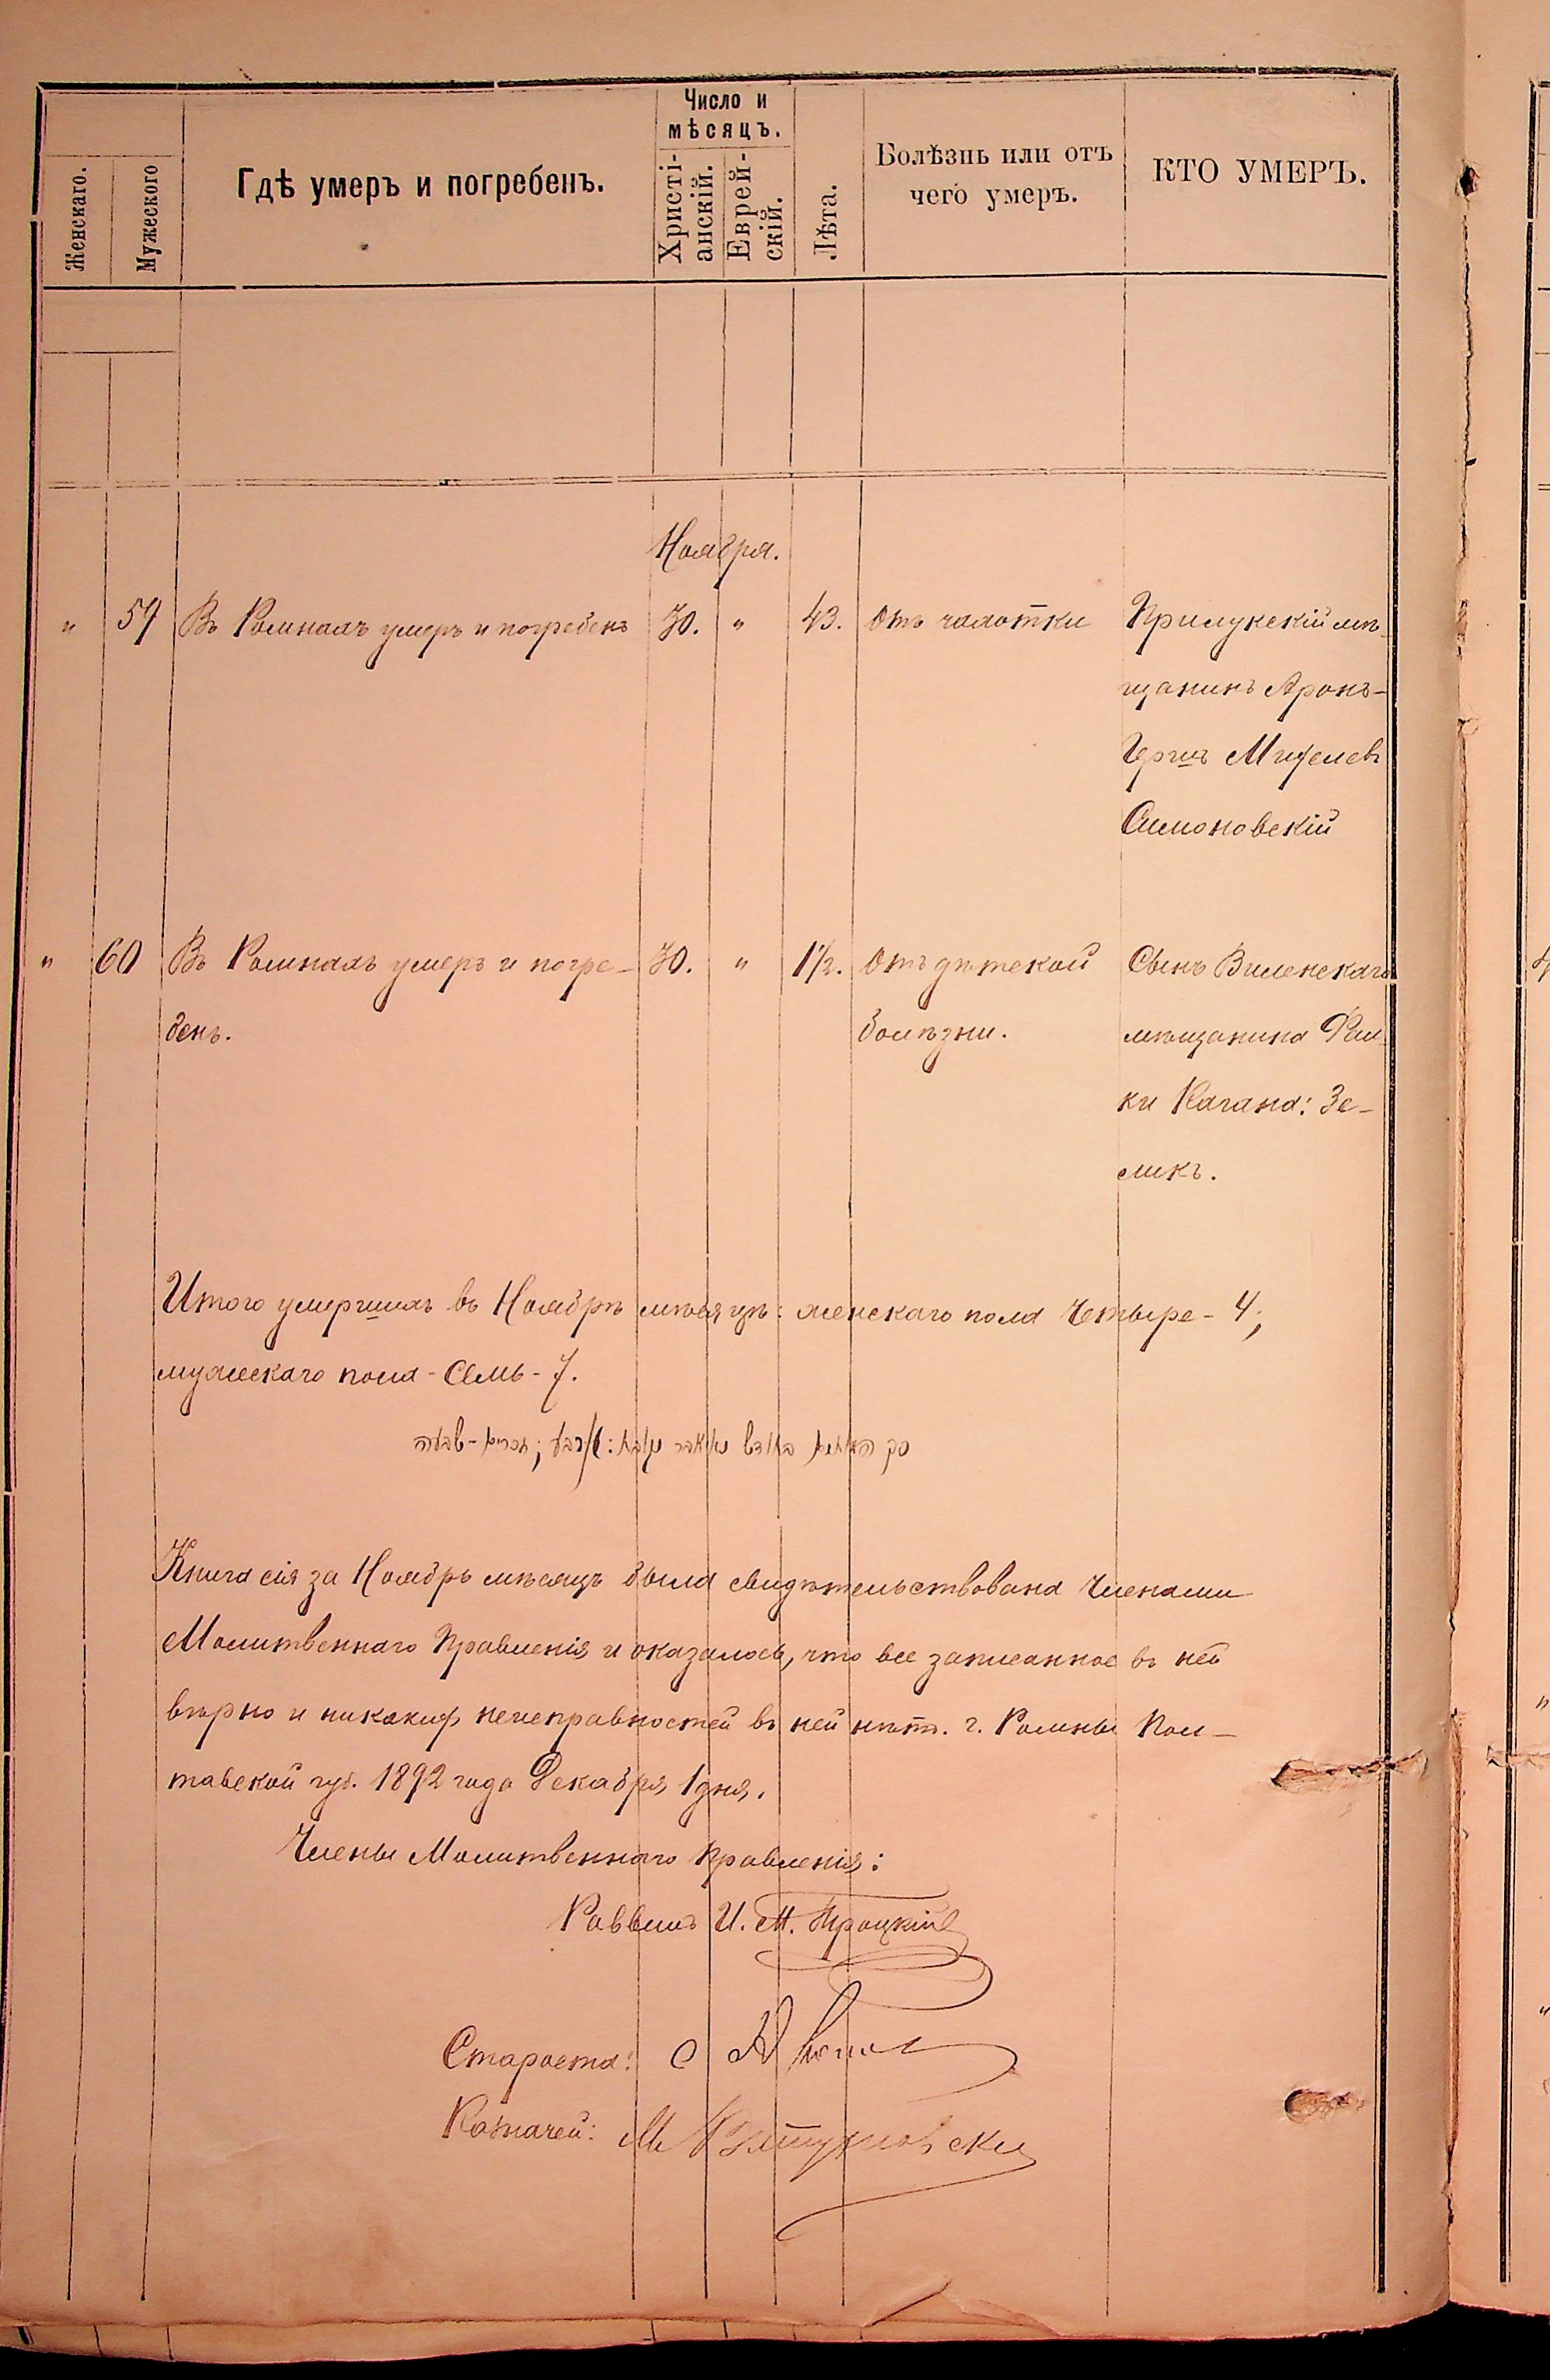 Женскаго.
Мужеского
Гдѣ умеръ и погребенъ.
Число и
мѣсяцъ.
Христі-
анскій.
Еврей-
скій.
Лѣта.
Болѣзнь или отъ
чего умеръ.
КТО УМЕРЪ.
Ноября.
" 59 Въ Ромнахъ умеръ и погребенъ 30. " 43. Отъ чахотки Прилукскій мѣ-
щанинъ Аронъ-
Герш
Симоновскій
" 60 Въ Ромнахъ умеръ и погре- 30. " 1½. Отъ дѣтской Сынъ Виленскаго
бенъ. болѣзни. мѣщанина Фай-
ки Кагана: Зе-
ликъ.
Итого умершихъ въ Ноябрѣ мѣсяцѣ: женскаго пола Четыре - 4;
мужескаго пола - Семь - 7.
סך
Книга сія за Ноябрь мѣсяцъ была свидѣтельствована Членами
Молитвеннаго Правленія и оказалось, что все записанное въ ней
вѣрно и никакихъ неисправностей въ ней нѣтъ. г. Ромны Пол-
тавской губ. 1892 года Декабря 1 дня.
Члены Молитвеннаго Правленія:
Раввинъ И. М. Троцкій
Староста:
Казначей: М